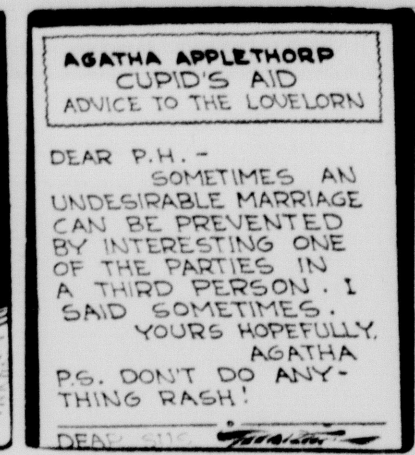 AGATHA APPLETHORP
CUPID'S AID
ADVICE TO THE LOVELORN
DEAR P.H. -
SOMETIMES AN
UNDESIRABLE MARRIAGE
CAN BE PREVENTED
BY INTERESTING ONE
OF THE PARTIES IN
A THIRD PERSON. I
SAID SOMETIMES.
YOURS HOPEFULLY,
AGATHA
P.S. DON'T DO ANY-
THING RASH!
DEAR